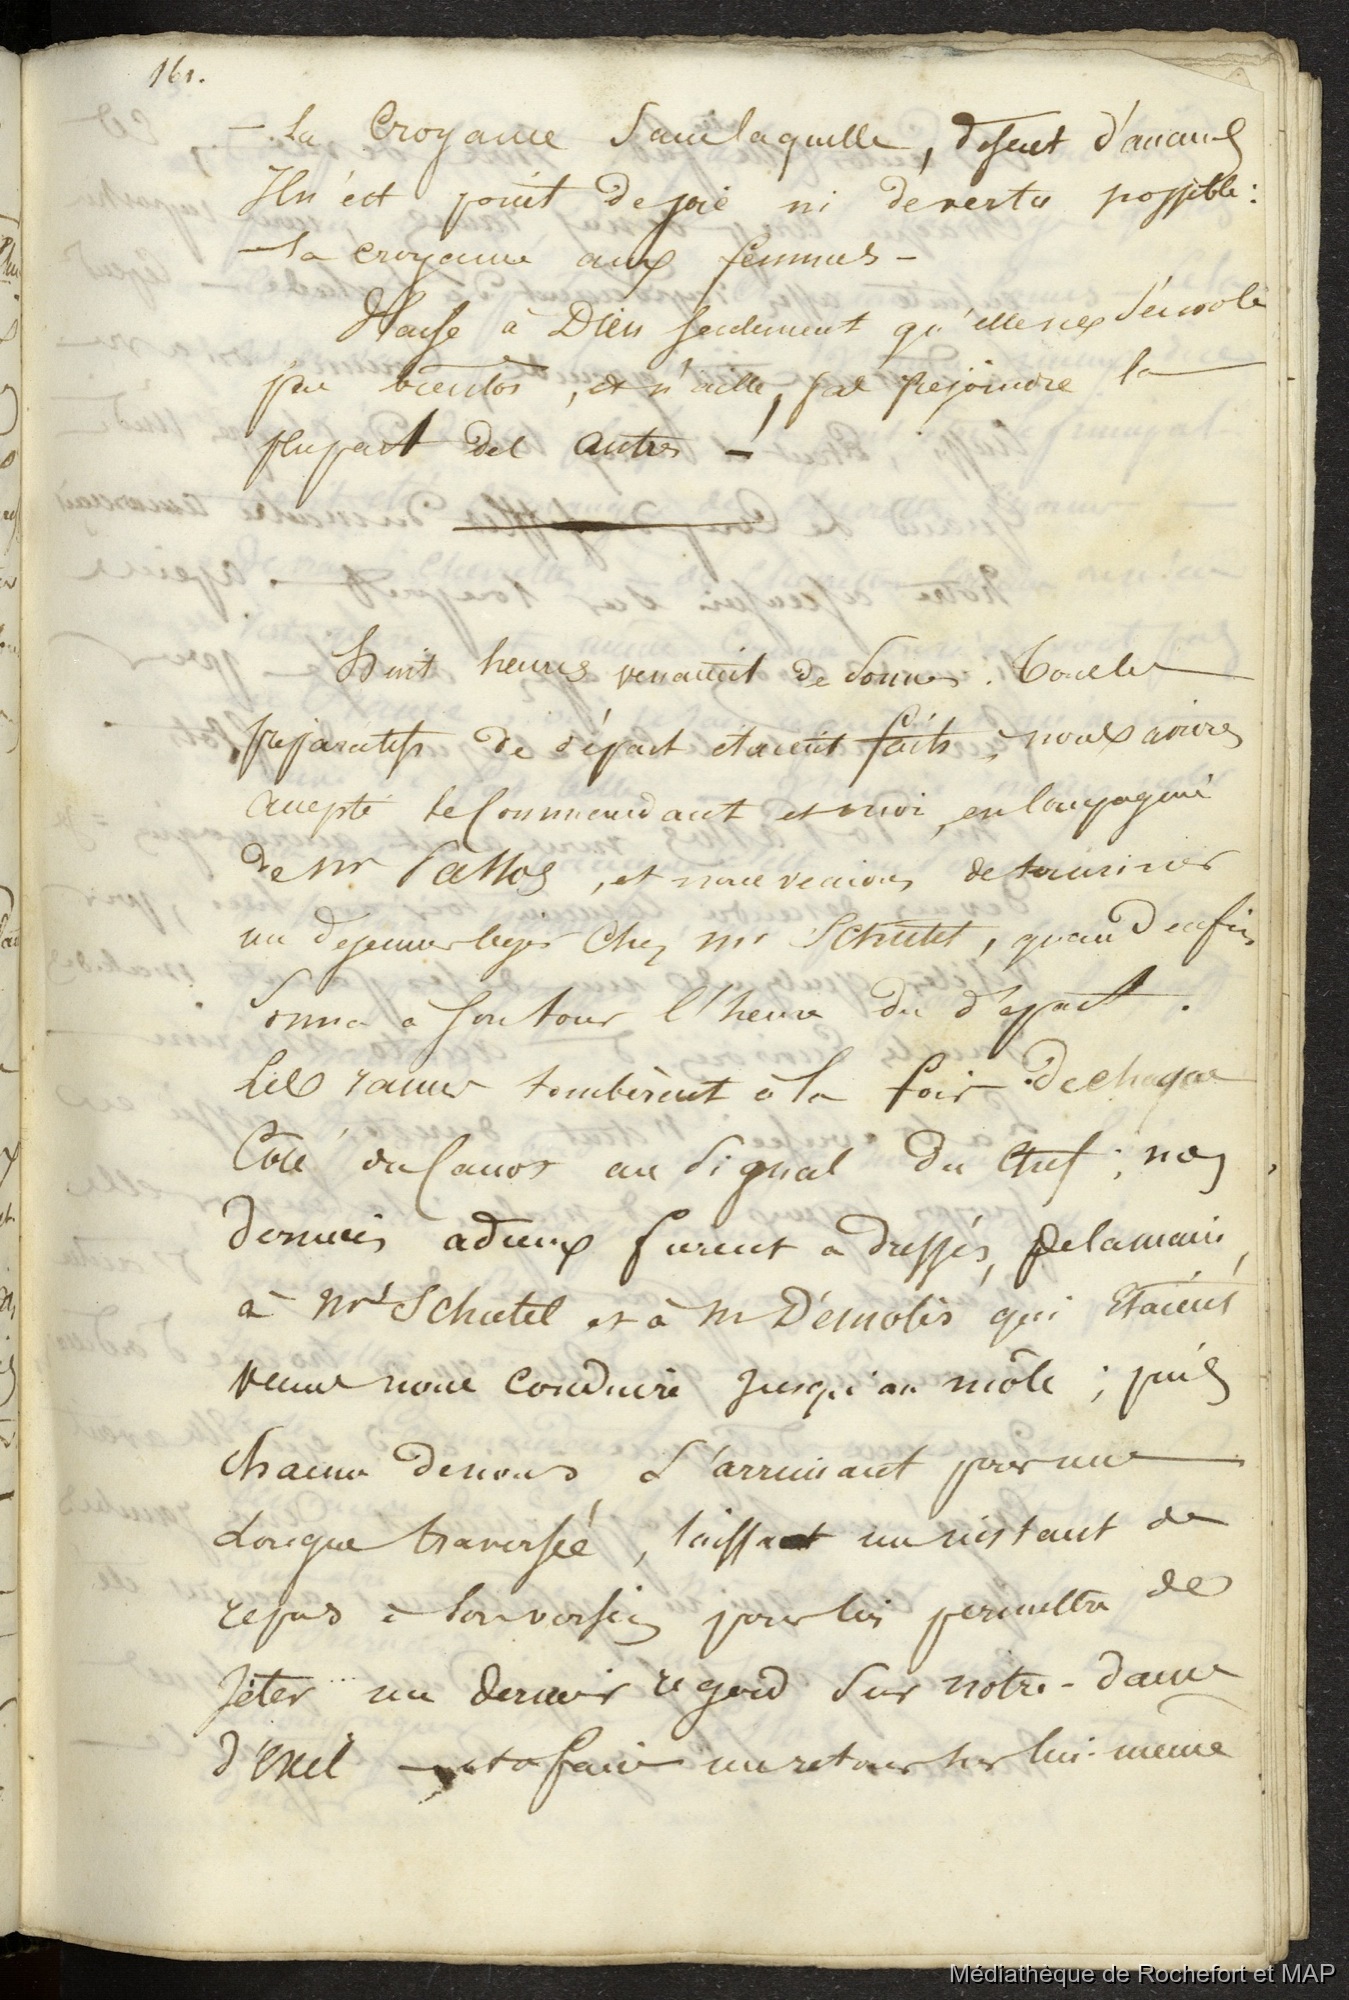 161.
— la Croyance sans laquelle, disent d'aucuns
Il n'est point de joie ni de vertu possible :
— la croyance aux femmes —
Plaise à Dieu seulement qu'elle ne s'envole
pas bientôt, et n'aille, pas rejoindre la
plupart des autres —!
Huit heures venaient de sonner. Tous les
préparatifs de départ étaient faits ; nous avions
accepté le Commandant et moi, en compagnie
de Mr Passos, et nous venions de terminer
un dejeuner léger chez mr Schutel, quand enfin
sonna à son tour l'heure du départ.
Les rames tombèrent à la fois de chaque
Côté du Canot au signal du Chef ; nos
derniers adieux furent adressés, de la main,
à Mr Schutel et à Mr Démolis qui étaient
venus nous conduire jusqu'au môle ; puis
chacun de nous s'arrimant pour une
Longue traversée, laissant un instant de
repos à son voisin pour lui permettre de
Jeter un dernier regard sur notre-dame
d'exil — et à faire un retour sur lui-même
Médiathèque de Rochefort et MAP